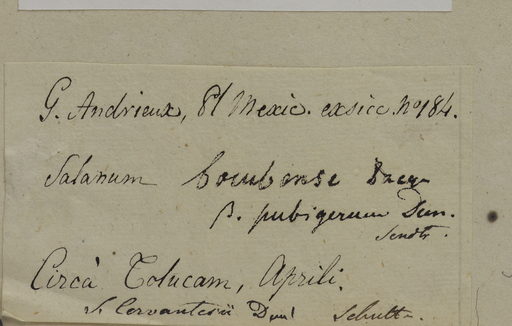 G. Andrieux, Pl. Mexic. exsicc. No 184.
Solanum bombense
β. pubigerum Dun.
Sendtr.
Circà Tolucam, Aprili.
S. Cervantesii Dun!